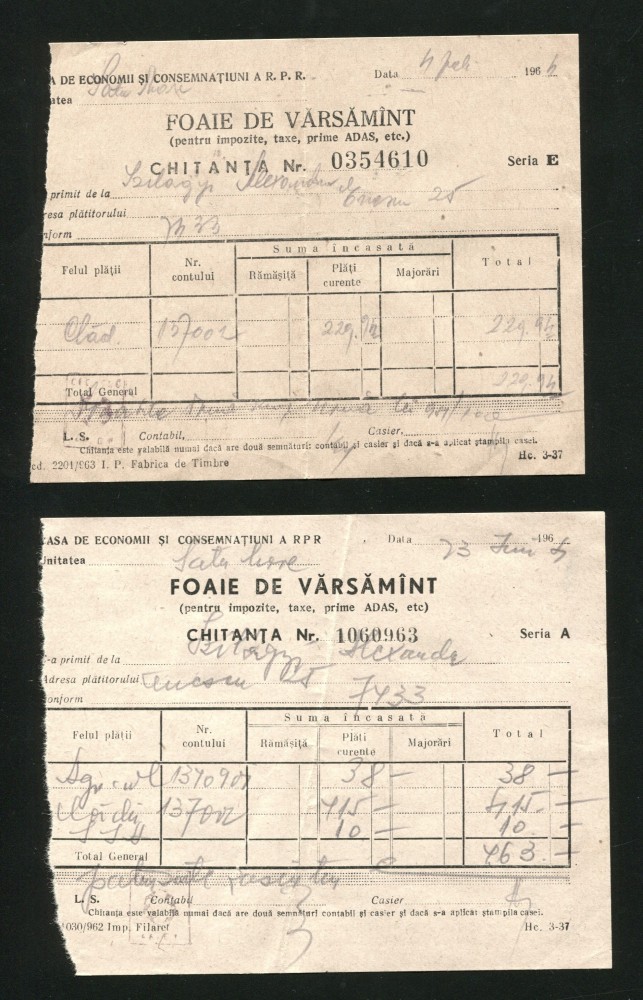 A DE ECONOMII ȘI CONSEMNAȚIUNI A R. P. R. Data 4 Juli 1964
atea Satu Mare
FOAIE DE VĂRSĂMÎNT
(pentru impozite, taxe, prime ADAS, etc.)
CHITANȚA Nr. 0354610 Seria E
primit de la Szilagyi Alexandru
resa plătitorului 25
nform 7433
Suma încasată
Felul plății Nr. contului Rămășiță Plăți curente Majorări Total
Clăd. 137002 229.94 229.94
Total General 229.94
L. S. Contabil, Casier,
Chitanța este valabilă numai dacă are două semnături: contabil și casier și dacă s-a aplicat ștampila casei.
cd. 2201/963 I. P. Fabrica de Timbre Hc. 3-37
CASA DE ECONOMII ȘI CONSEMNAȚIUNI A RPR Data 23 Iun 196
Unitatea Satu Mare
FOAIE DE VĂRSĂMÎNT
(pentru impozite, taxe, prime ADAS, etc)
CHITANȚA Nr. 1060963 Seria A
-a primit de la Szilagyi Alexandr
Adresa plătitorului 25
onform 7433
Suma încasată
Felul plății Nr. contului Rămășiță Plăți curente Majorări Total
1370901 38 — 38 —
Clădiri 137002 415 — 415 —
10 — 10 —
Total General 463 —
L. S. Contabil Casier
Chitanța este valabilă numai dacă are două semnături contabil și casier și dacă s-a aplicat ștampila casei.
1030/962 Imp. Filaret Hc. 3-37